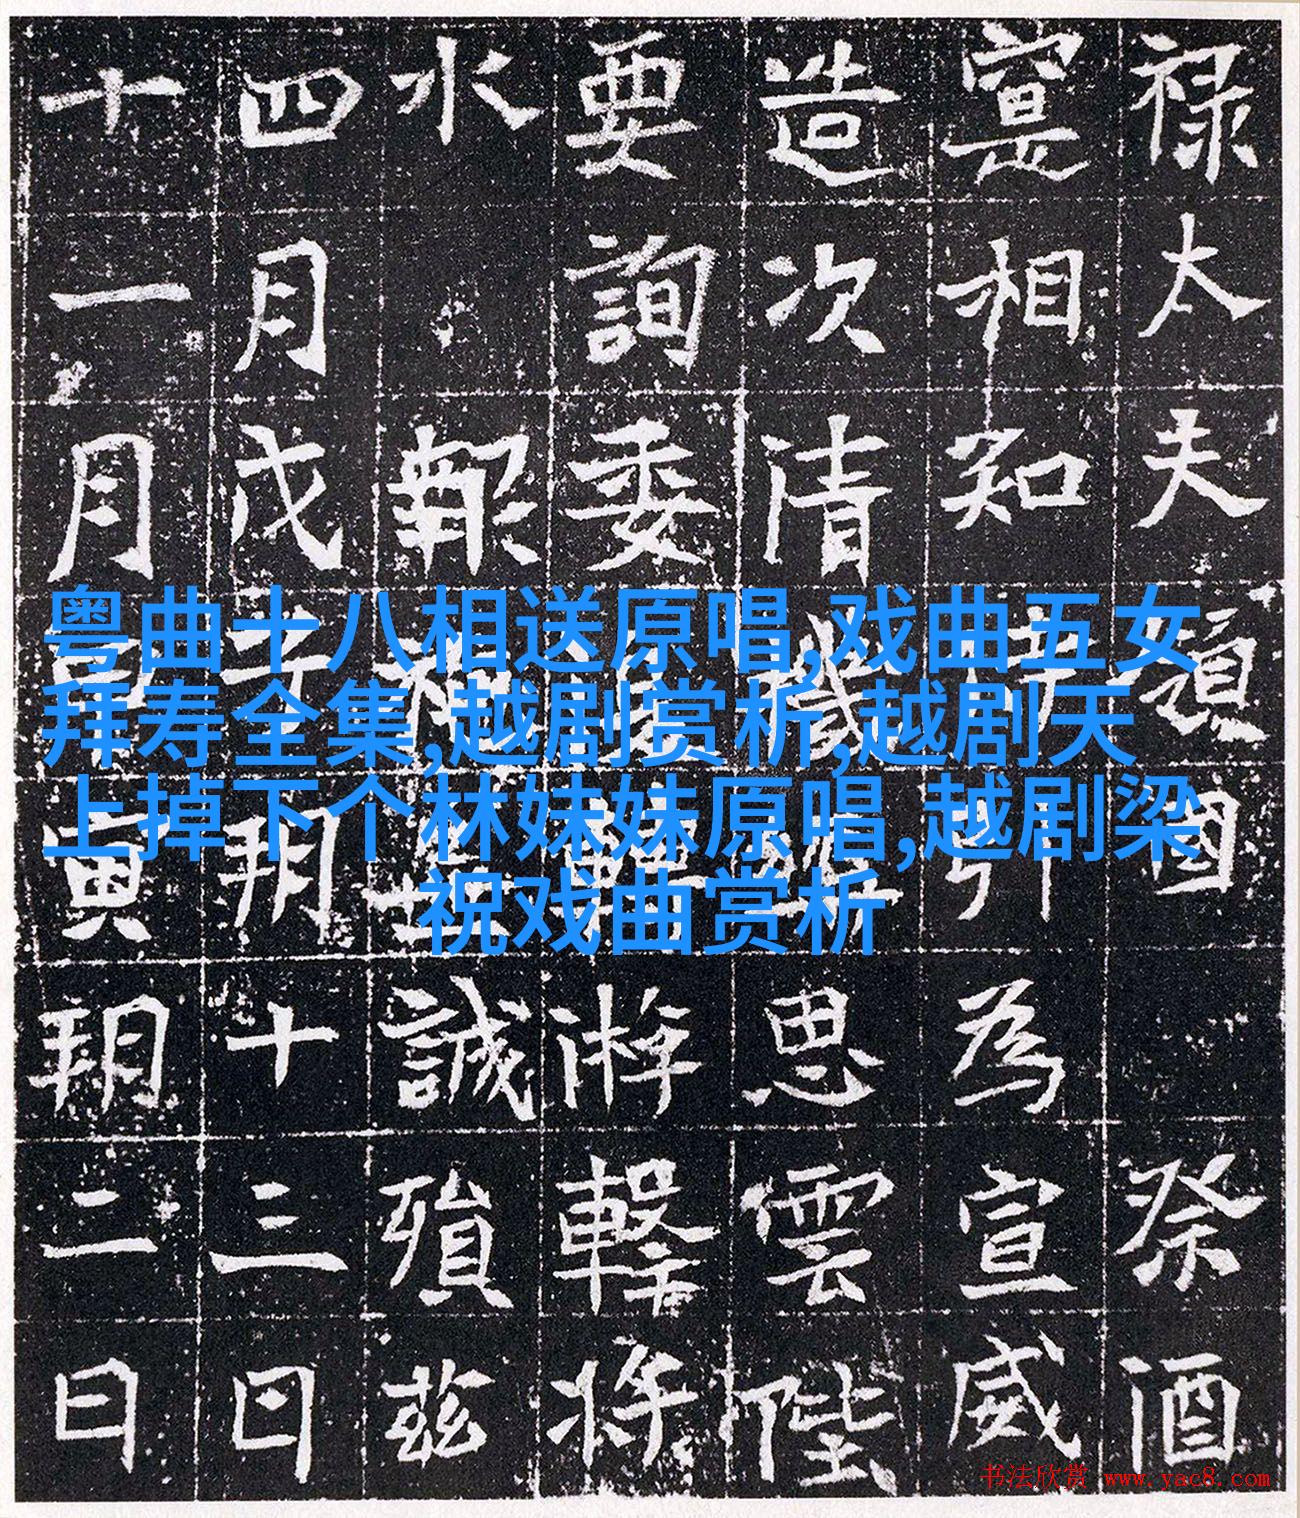 禄太夫國祭酒
寔相知引為宣威
造次清思雲陛
要詢委游擊將
水報誠殞茲
四月戊子朔十三日
十一月寅朔二日
粤曲十八相送原唱,戏曲五女
拜寿全集,越剧赏析,越剧天
上掉下个林妹妹原唱,越剧梁
祝戏曲赏析
书法欣赏 www.yac8.com